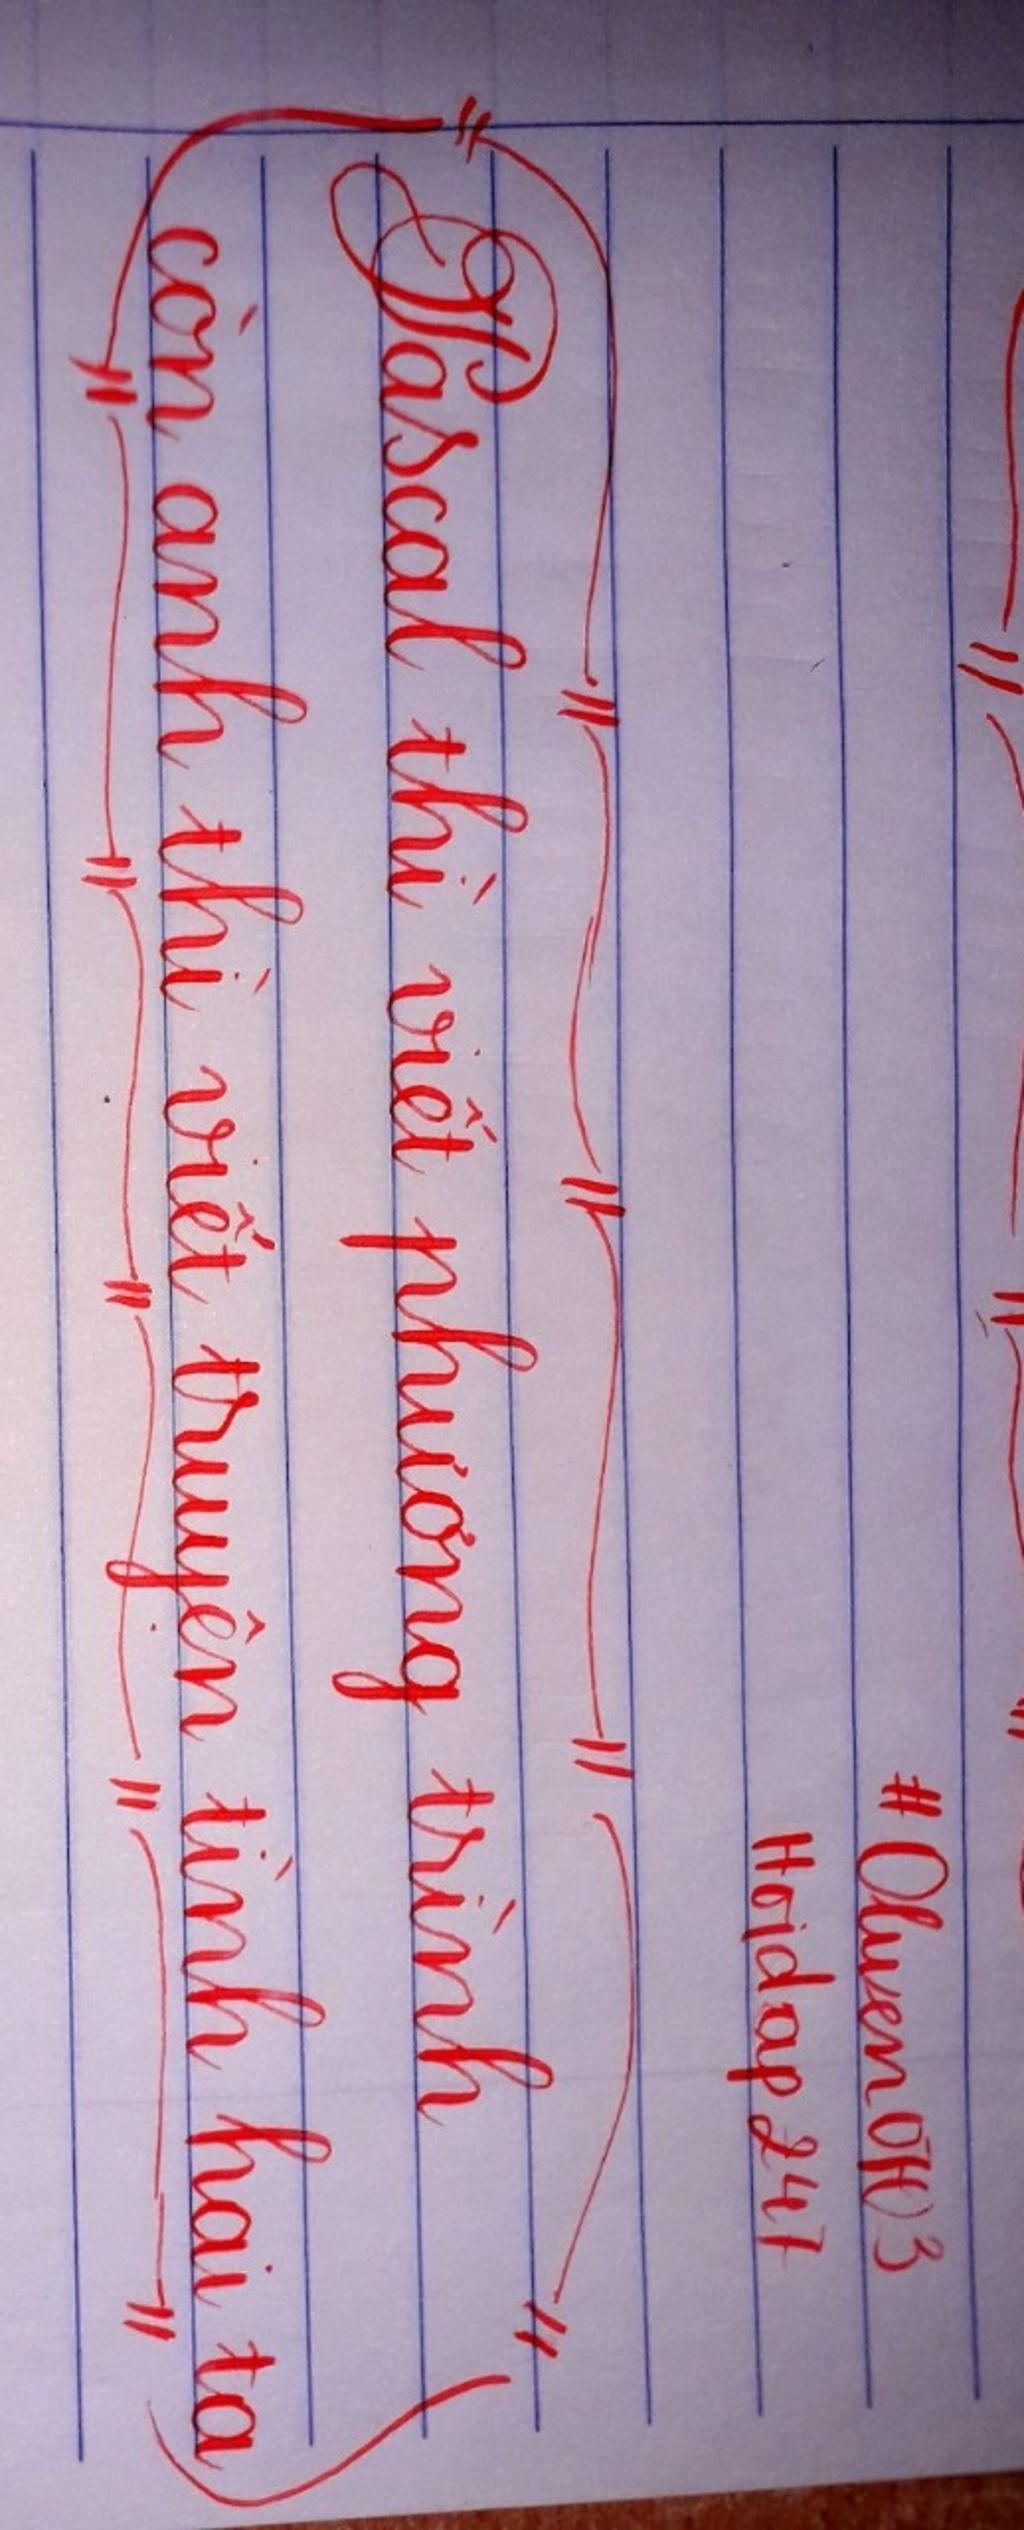 Hoidap247
Pascal thì viết phương trình
còn anh thì viết truyện tình hai ta